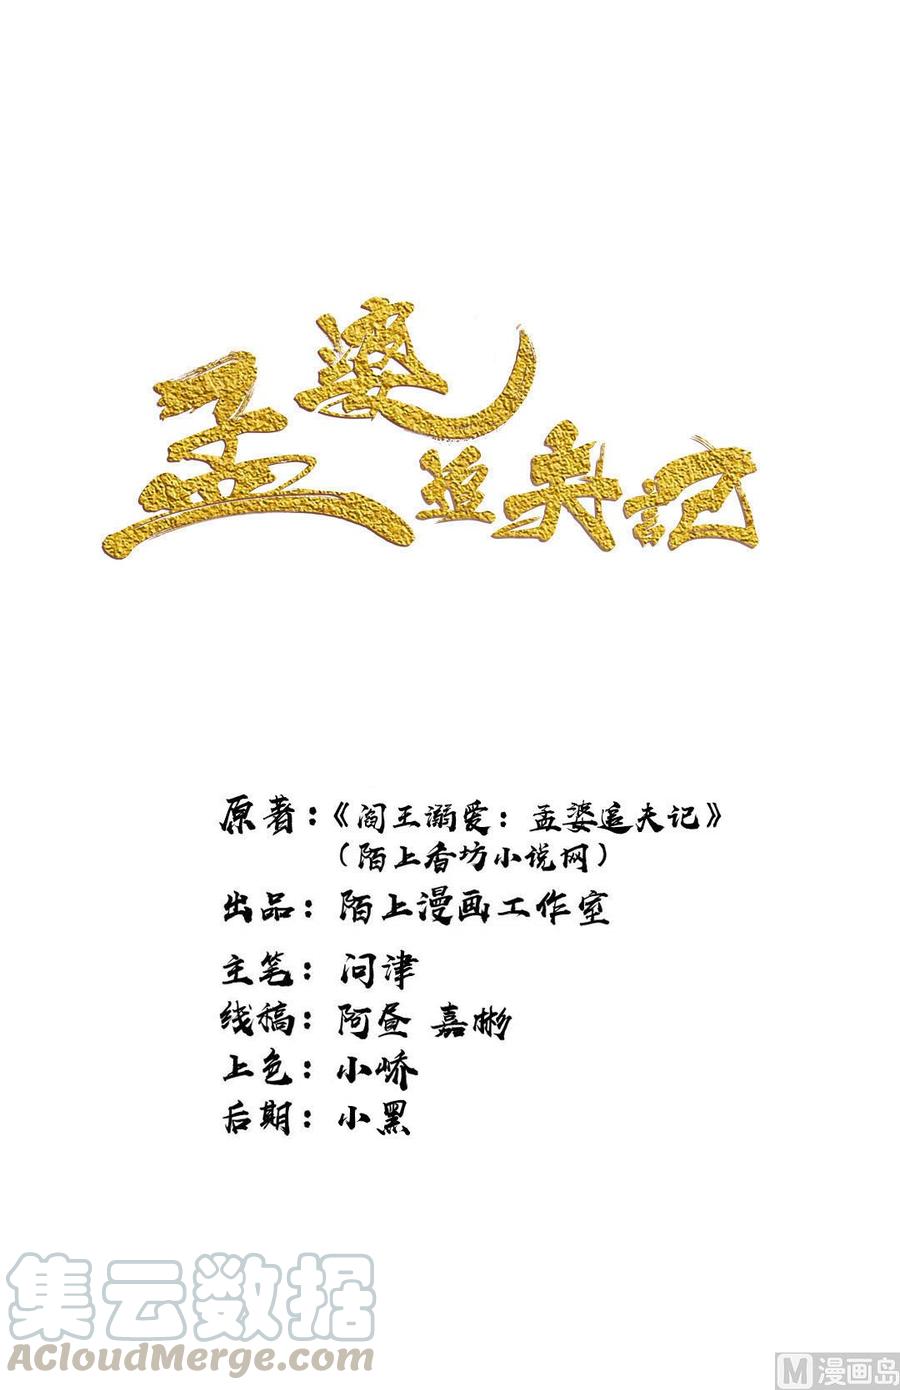 孟婆追夫记
原著：《阎王溺爱：孟婆追夫记》
（陌上香坊小说网）
出品：陌上漫画工作室
主笔：问津
线稿：阿昼 嘉彬
上色：小峤
后期：小黑
集云数据
AcloudMerge.com
M漫画岛